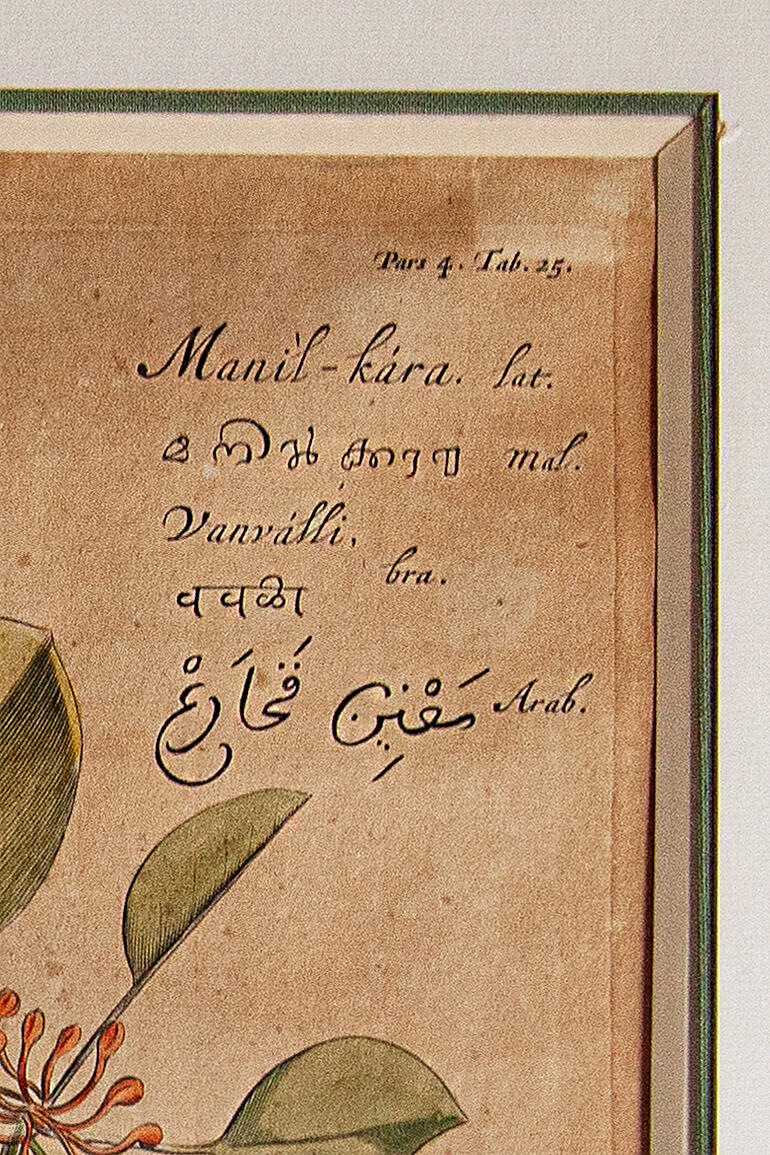 Pars 4. Tab. 25.
Manìl-kára. lat.
മനിൽ ക്കാരാ mal.
Vanválli,
bra.
ववळी
Arab.